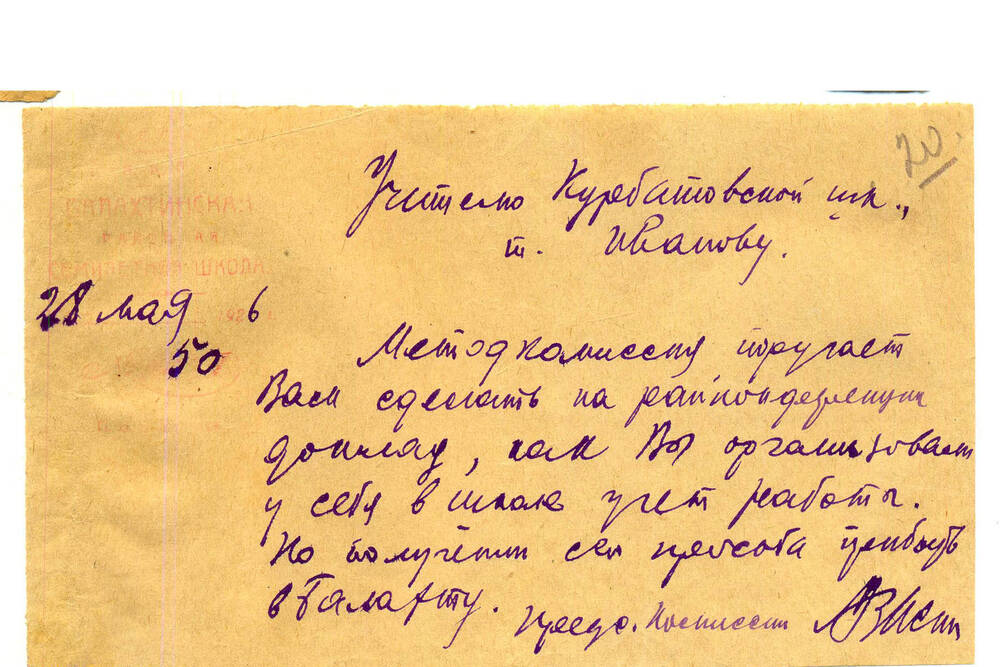 20.
Учителю Курбатовской шк.,
т. Иванову.
БАЛАХТИНСКАЯ
ШКОЛА
28 мая 6
50
Методкомиссия поручает
Вам сделать на райконференции
доклад, как Вы организовали
у себя в школе учет работы.
По получении сей просьба прибыть
в Балахту.
Предс. Комиссии